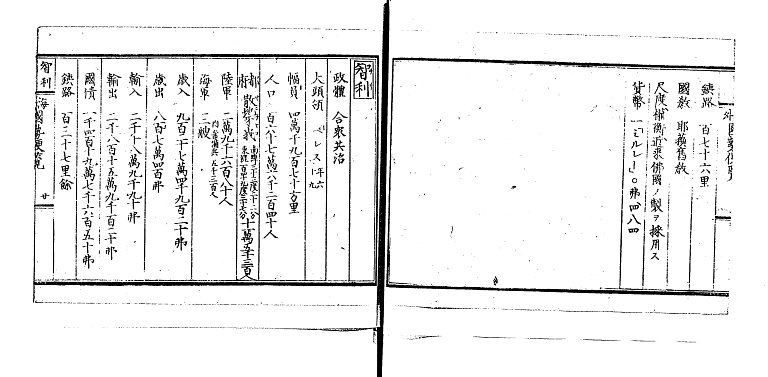 鉄路 百七十六里
國教 耶蘇舊教
尺度權衡近来佛國ノ製ヲ採用ス
貨幣 一「ミルレー」〇弗四八四
智利
政體 合衆共治
大頭領
幅員 四萬千九百七十六方里
人口 百六十七萬六千二百四十人
都府 十一萬五千三百人
陸軍 二萬九千六百八十人
海軍 二艘
歳入 九百二十七萬四千九百二十弗
歳出 八百七萬四百弗
輸入 二千十八萬九千九十弗
輸出 二千六百十五萬九千百二十弗
國債 一千四百十九萬七千六百五十弗
鉄路 百三十七里餘
智利
廿